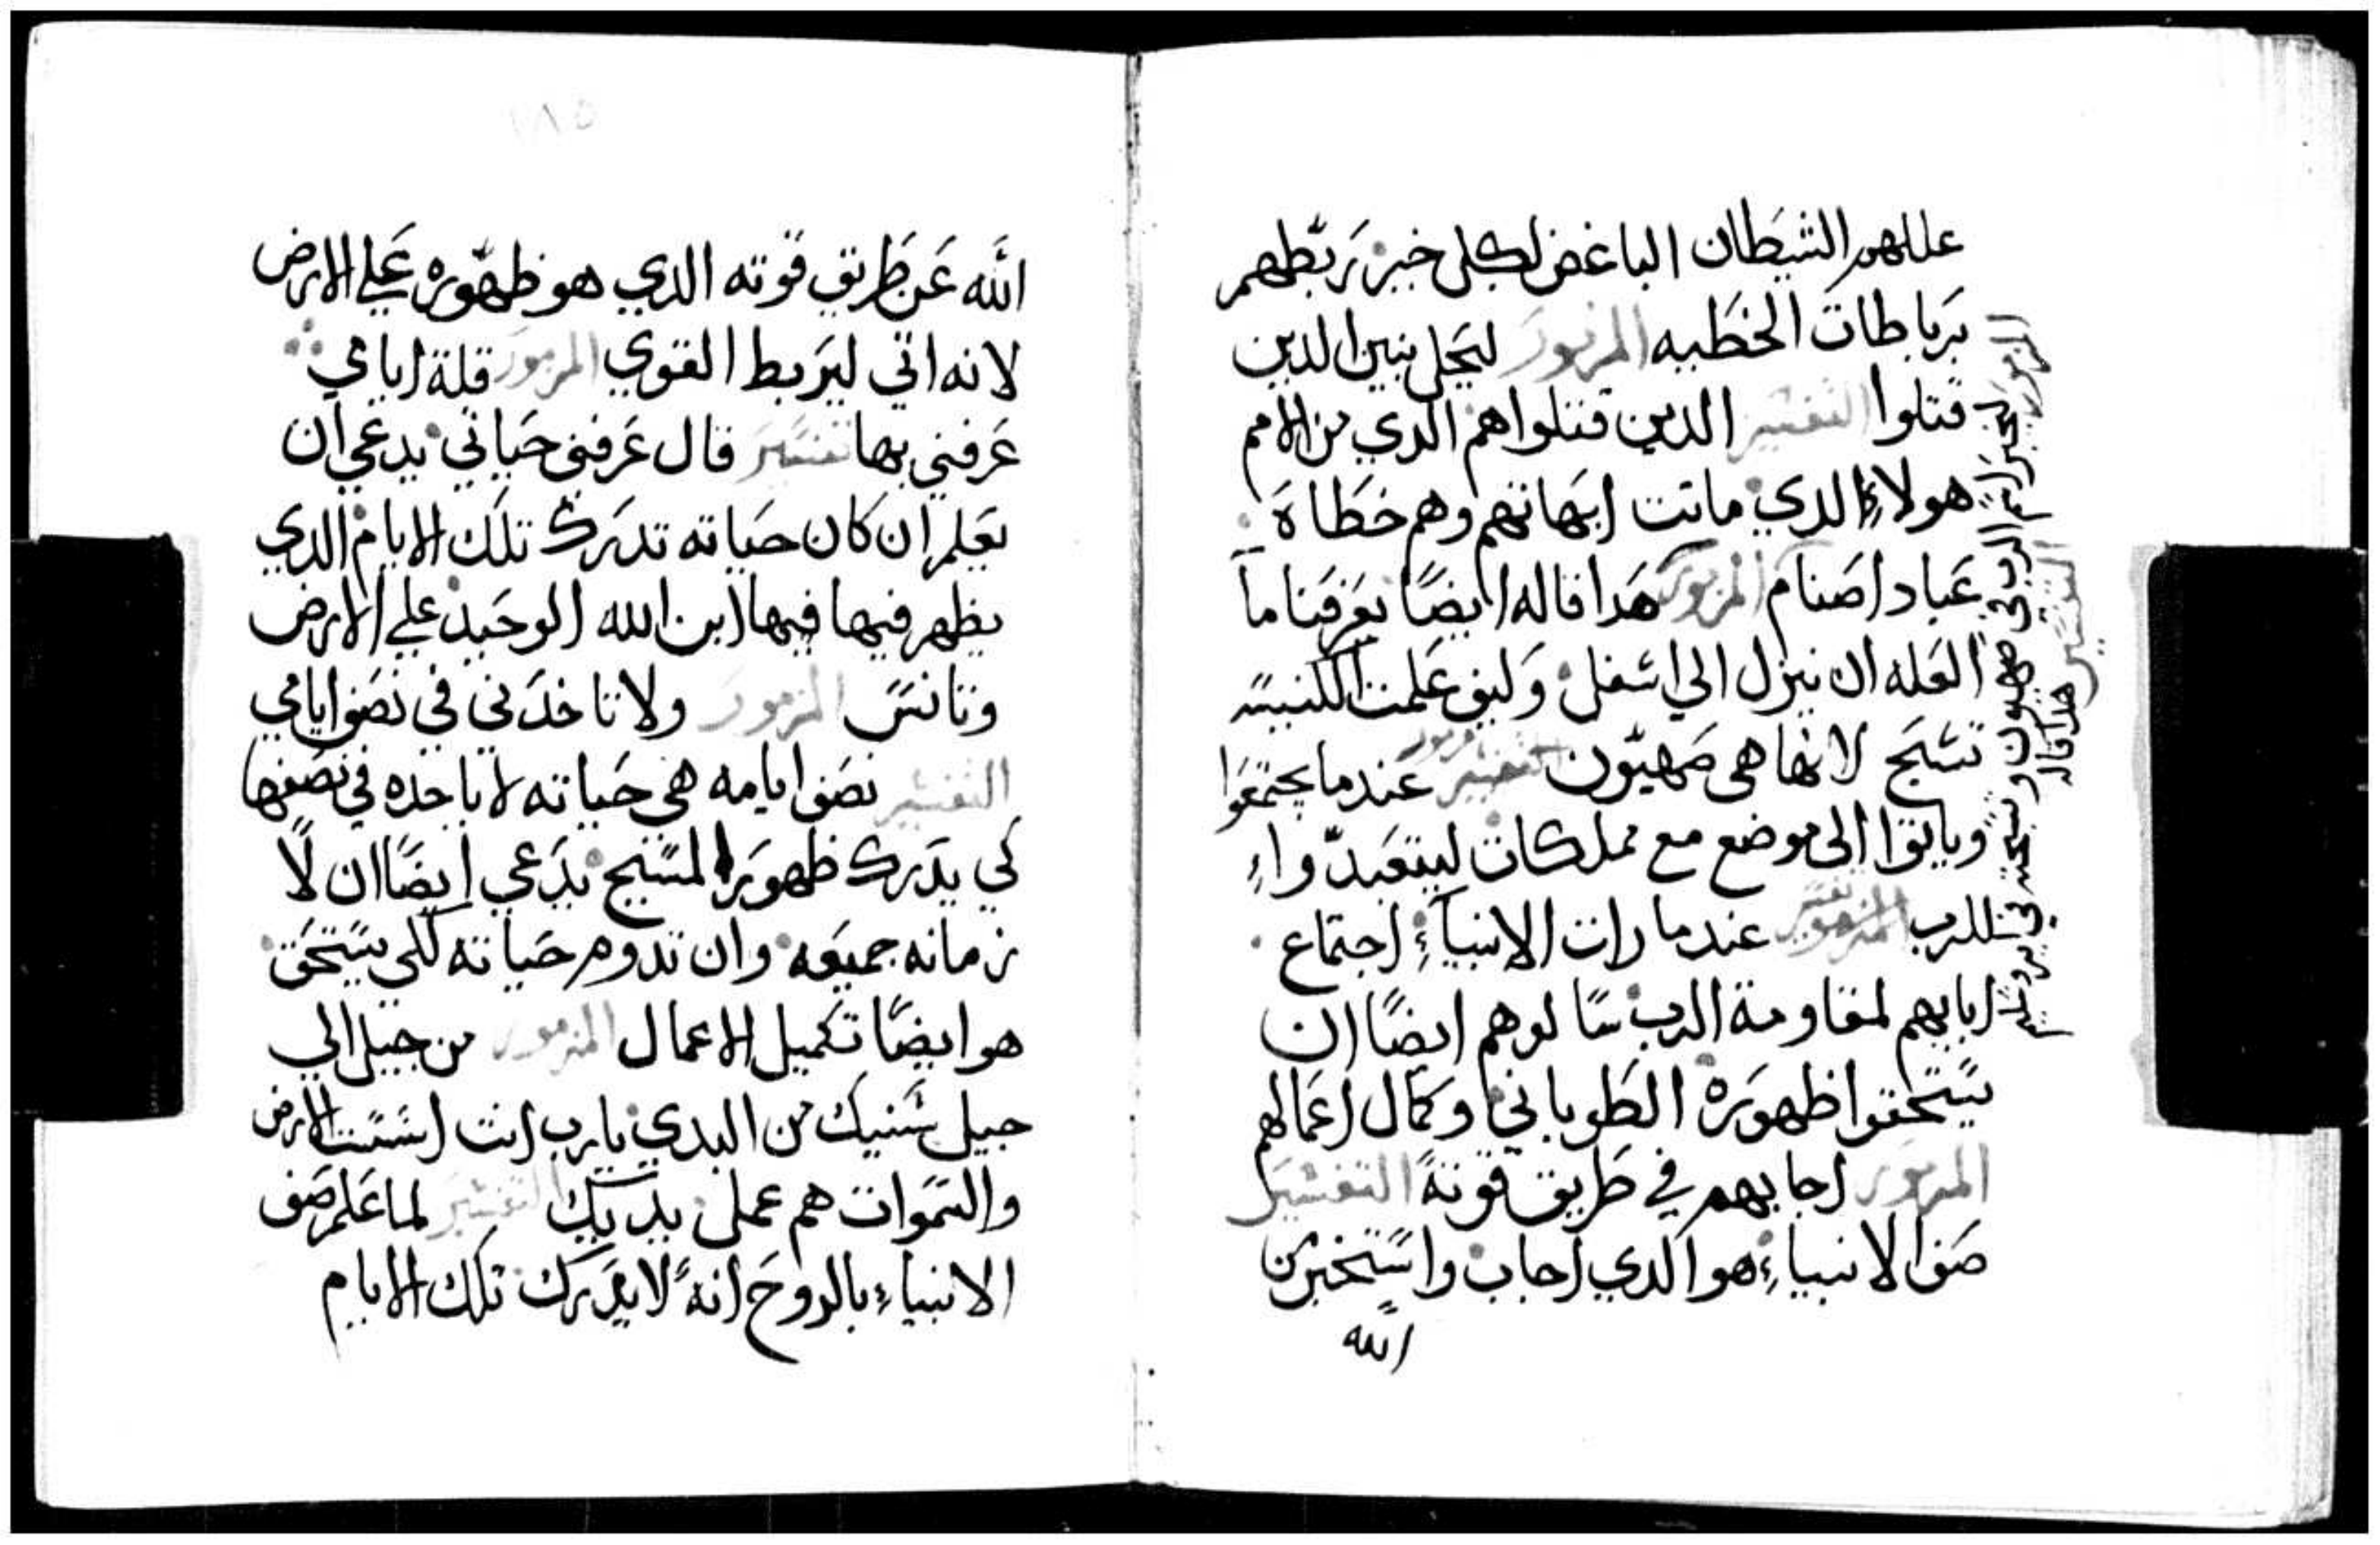 عللهم الشيطان الباغض لكل خير ربطهم
برباطات الخطيه المزمور ليحل بنين الدين
قتلوا التفسير الدين قتلوا هم الدي من الامم
هولاء الدي ماتت ابهاتهم وهم خطاة
عباد اصنام المزمور هدا قاله ايضا يعرفنا ما
العله ان ينزل الي اسفل وليف علمت الكنيسه
تسبح لانها هي صهيون التفسير مزمور عندما يجتمعوا
وياتوا الي موضع مع مملكات ليتعبدوا
للرب المزمور تفسير عندما رات الانبياء اجتماع
ابايهم لمقاومة الرب سالوهم ايضا ان
يستحقوا ظهوره الطوباني وكمال اعمالهم
المزمور اجابهم في طريق قوته التفسير
صف الانبياء هو الدي اجاب واستخبر من
الله
المزمور ليخبر باسم الرب في صهيون وتسبحته في يروشليم
التفسير هدا قاله
١٨٥
الله عن طريق قوته الدي هو ظهوره علي الارض
لانه اتي ليربط القوي المزمور قلة ايامي
عرفني بها تفسير قال عرفني حياتي يدعي ان
يعلم ان كان حياته تدرك تلك الايام الدي
يظهر فيها فيها ابن الله الوحيد علي الارض
وتانس المزمور ولا تاخدني في نصف ايامي
التفسير نصف ايامه هي حياته لا ياخده في نصفها
كي يدرك ظهور المسيح يدعي ايضا ان لا
زمانه جميعه وان تدوم حياته لكي يستحق
هو ايضا تكميل الاعمال المزمور من جيل الي
جيل سنيك من البدي يارب انت اسست الارض
والسموات هم عمل يديك التفسير لما علم صف
الانبياء بالروح انه لا يدرك تلك الايام